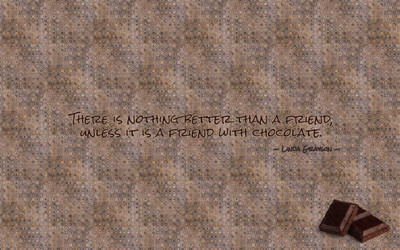 There is nothing better than a friend,
unless it is a friend with chocolate.
~ Linda Grayson ~